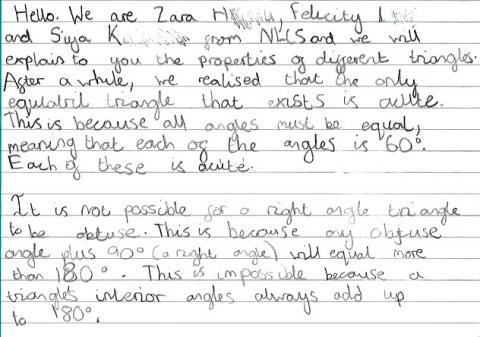 Hello. We are Zara H, Felicity
and Siya K from NLCS and we will
explain to you the properties of different triangles.
After a while, we realised that the only
equilatril triangle that exists is acute.
This is because all angles must be equal,
meaning that each of the angles is 60°.
Each of these is acute.
It is not possible for a right angle triangle
to be obtuse. This is because any obtuse
angle plus 90° (a right angle) will equal more
than 180°. This is impossible because a
triangles interior angles always add up
to 180°.